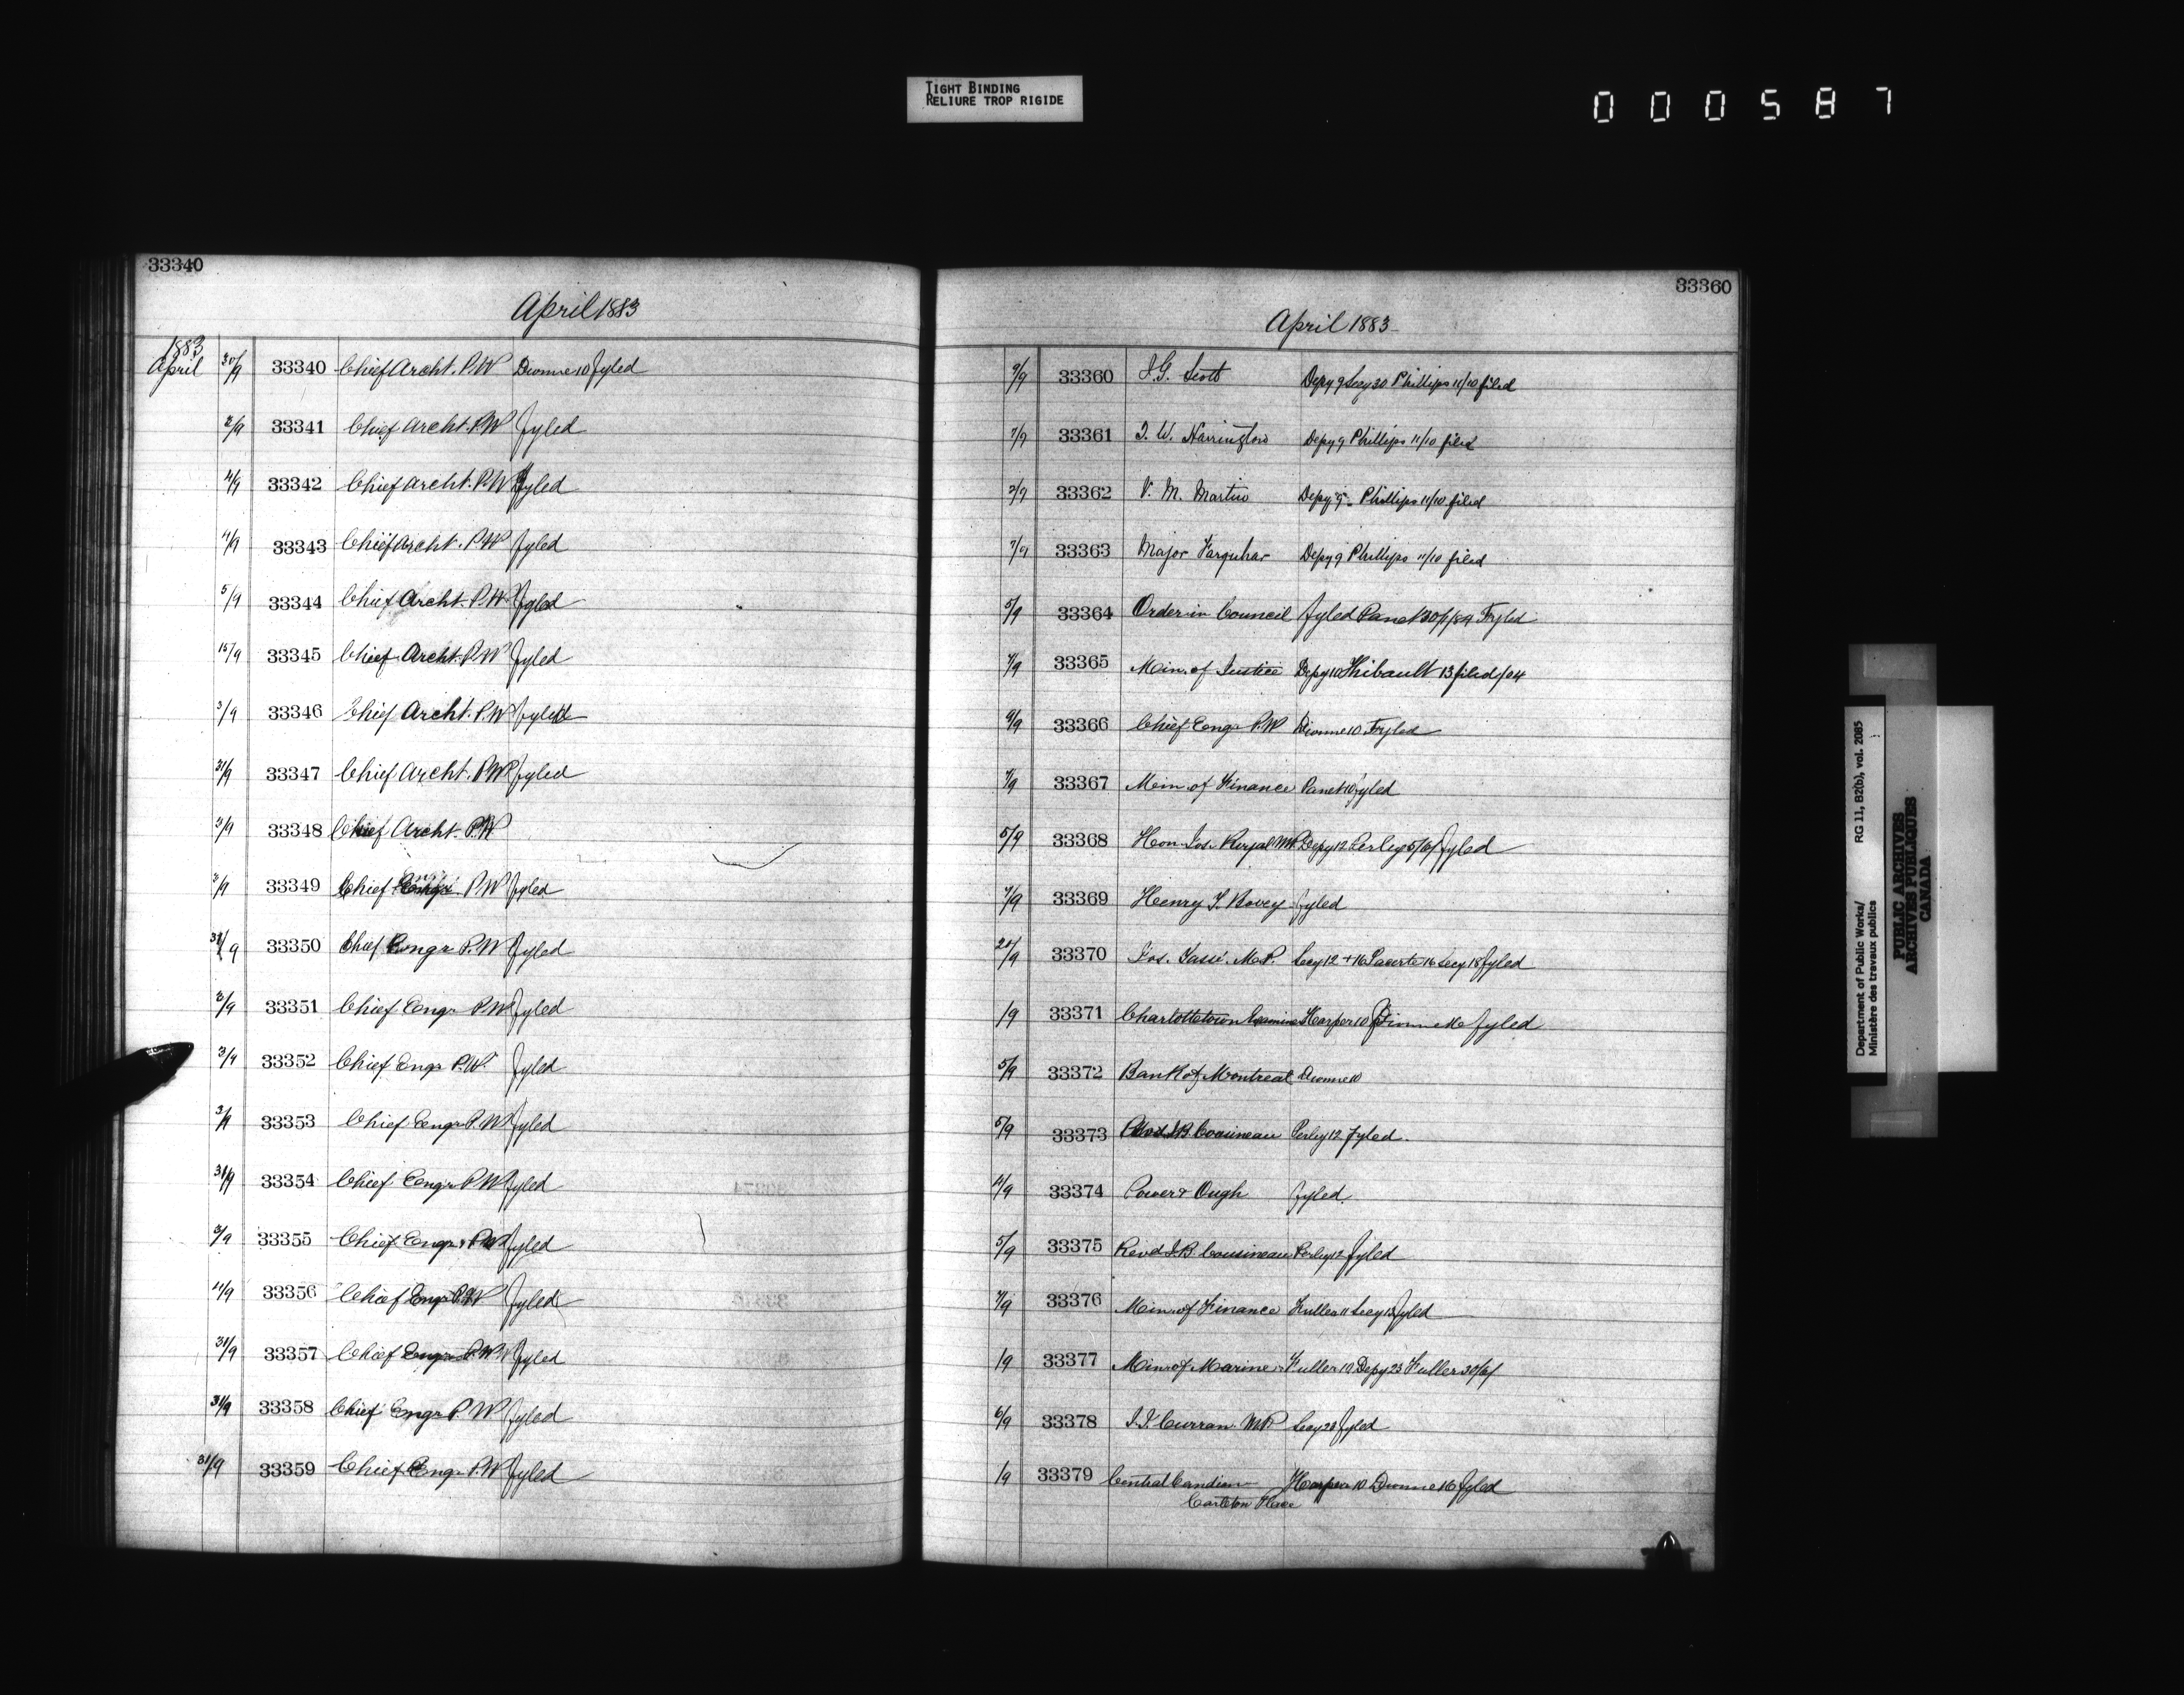 TIGHT BINDING
RELIURE TROP RIGIDE
000587
33340
April 1883
1883
April 30/9 33340 Chief Archt. P.W Dionne 10 fyled
3/9 33341 Chief Archt. P.W fyled
4/9 33342 Chief Archt. P.W fyled
4/9 33343 Chief Archt. P.W fyled
5/9 33344 Chief Archt. P.W. fyled
15/9 33345 Chief Archt. P.W fyled
3/9 33346 Chief Archt. P.W fyled
31/9 33347 Chief Archt. P.W fyled
3/9 33348 Chief Archt. P.W
3/9 33349 Chief Engr P.W fyled
31/9 33350 Chief Engr P.W fyled
3/9 33351 Chief Engr P.W fyled
3/9 33352 Chief Engr P.W. fyled
3/9 33353 Chief Engr P.W fyled
31/9 33354 Chief Engr P.W fyled
3/9 33355 Chief Engr P.W fyled
4/9 33356 Chief Engr P.W fyled
31/9 33357 Chief Engr P.W fyled
31/9 33358 Chief Engr P.W fyled
31/9 33359 Chief Engr P.W fyled
33360
April 1883
9/9 33360 J.G. Scott Depy 9 Secy 30 Phillips 11/10 filed
7/9 33361 T. W. Harrington Depy 9 Phillips 11/10 filed
3/9 33362 V. M. Martin Depy 9. Phillips 11/10 filed
7/9 33363 Major Farquhar Depy 9 Phillips 11/10 filed
5/9 33364 Order in Council fyled Panet 30/1/84 Fyled
7/9 33365 Min. of Justice Depy 10 Thibault 13 filed /04
9/9 33366 Chief Engr P.W Dionne 10 Fyled
7/9 33367 Min of Finance Panet 10 fyled
5/9 33368 Hon Jos. Royal MP. Depy 12 Perley 5/6/ fyled
7/9 33369 Henry T. Bovey fyled
20/9 33370 Jos. Tassé. M.P. Secy 12 + 16 Lacerte 16 Secy 18 fyled
/9 33371 Charlottetown Examiner Harper 10 Dionne 16 fyled
5/9 33372 Bank of Montreal Dionne 10
5/9 33373 Revd J.B. Cousineau Perley 12 fyled.
4/9 33374 Power & Ough fyled.
5/9 33375 Revd J.B. Cousineau Perley 12 fyled
7/9 33376 Min. of Finance Fuller 11 Secy 13 fyled
/9 33377 Min of Marine Fuller 10 Depy 23 Fuller 30/6/
6/9 33378 J.J. Curran. MP. Secy 28 fyled
/9 33379 Central Candian Harper 10 Dionne 16 fyled
Carleton Place
Department of Public Works/ RG 11, B2(b), vol. 2085
Ministère des travaux publics
PUBLIC ARCHIVES
ARCHIVES PUBLIQUES
CANADA